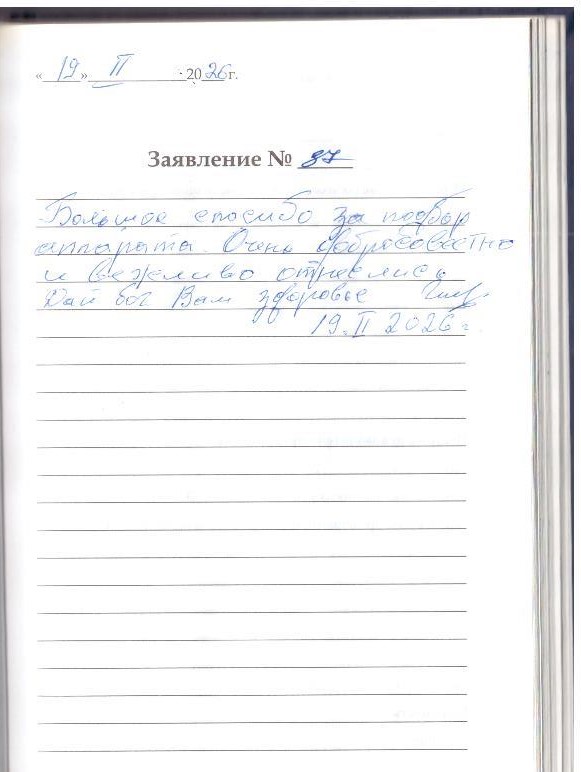 « 19 » II 2026 г.
Заявление № 37
Большое спосибо за подбор
аппарата. Очень добросовестно
и вежливо отнеслись
Дай бог Вам здоровье
19. II 2026 г.